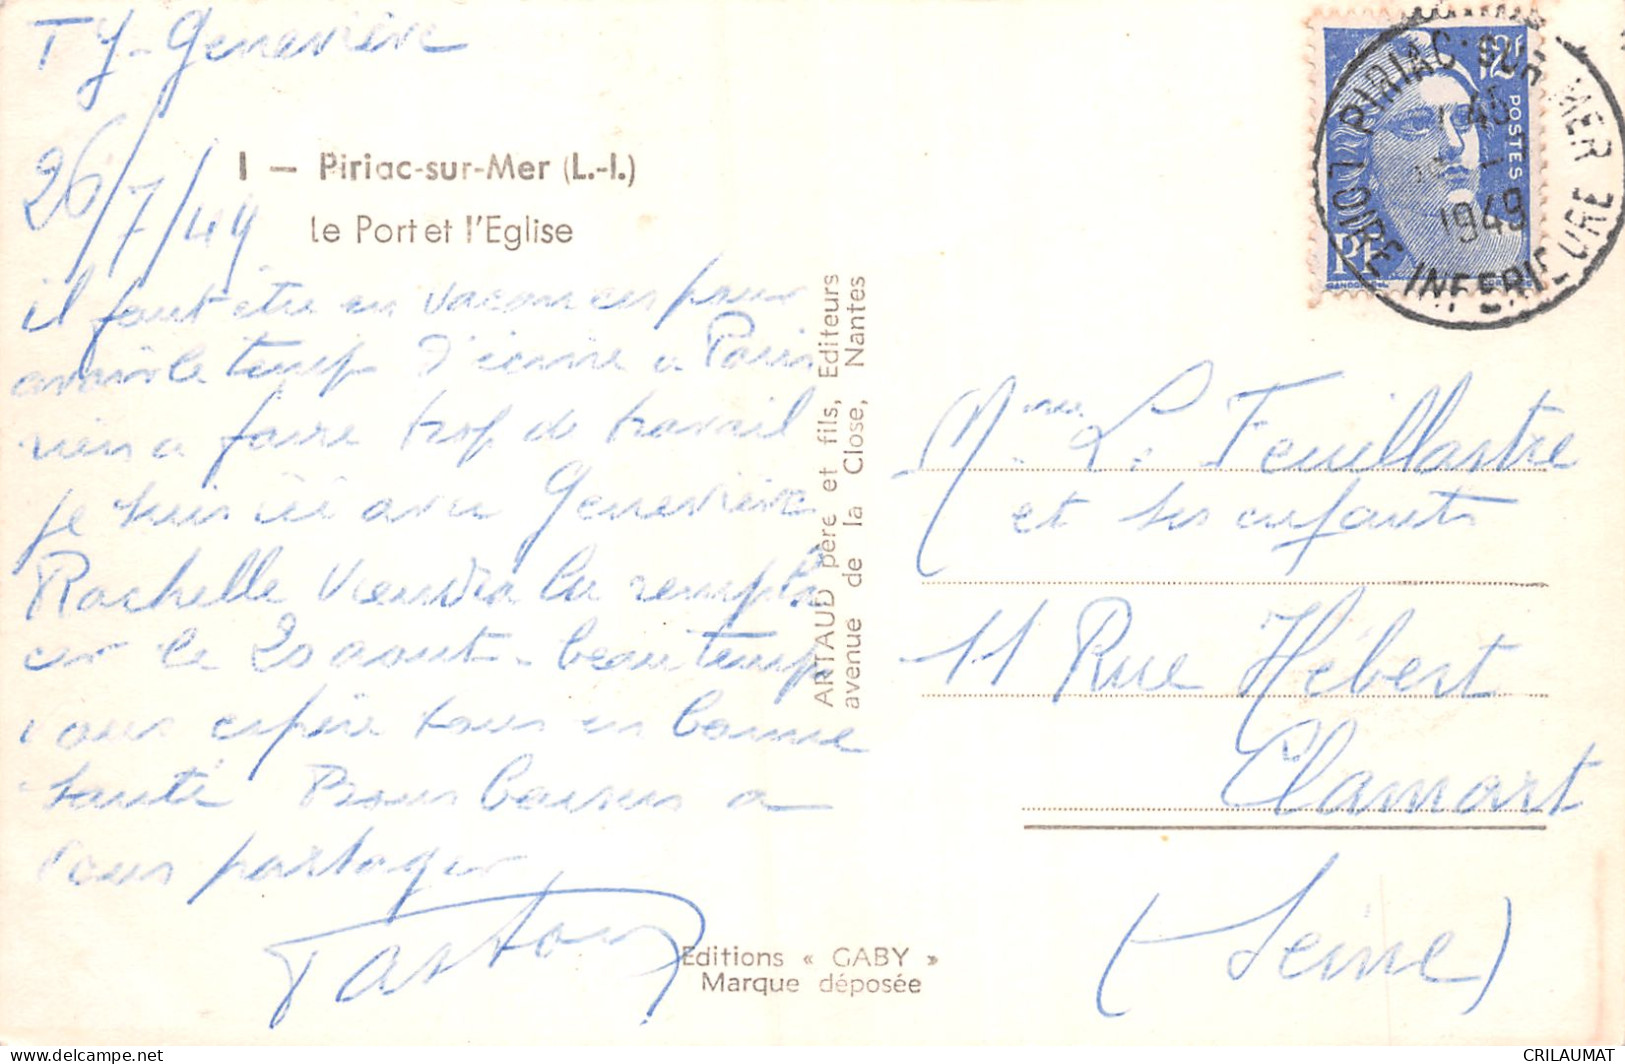 Ty-Geneviève
26/7/49
1 — Piriac-sur-Mer (L.-I.)
Le Port et l'Eglise
il faut être en vacances pour
avoir le temps d'écrire a Paris
rien a faire trop de travail
je suis ici avec Geneviève
Rachelle viendra la rempla
cer le 20 aout - beau temps
vous espère tous en bonne
santé Bons baisers a
vous partager
ARTAUD père et fils, Editeurs
avenue de la Close, Nantes
Editions « GABY »
Marque déposée
12F
POSTES
RF
PIRIAC-SUR-MER
45
1949
LOIRE INFERIEURE
Mme L. Feuillastre
et ses enfants
11 Rue Hébert
Clamart
(Seine)
CRILAUMAT